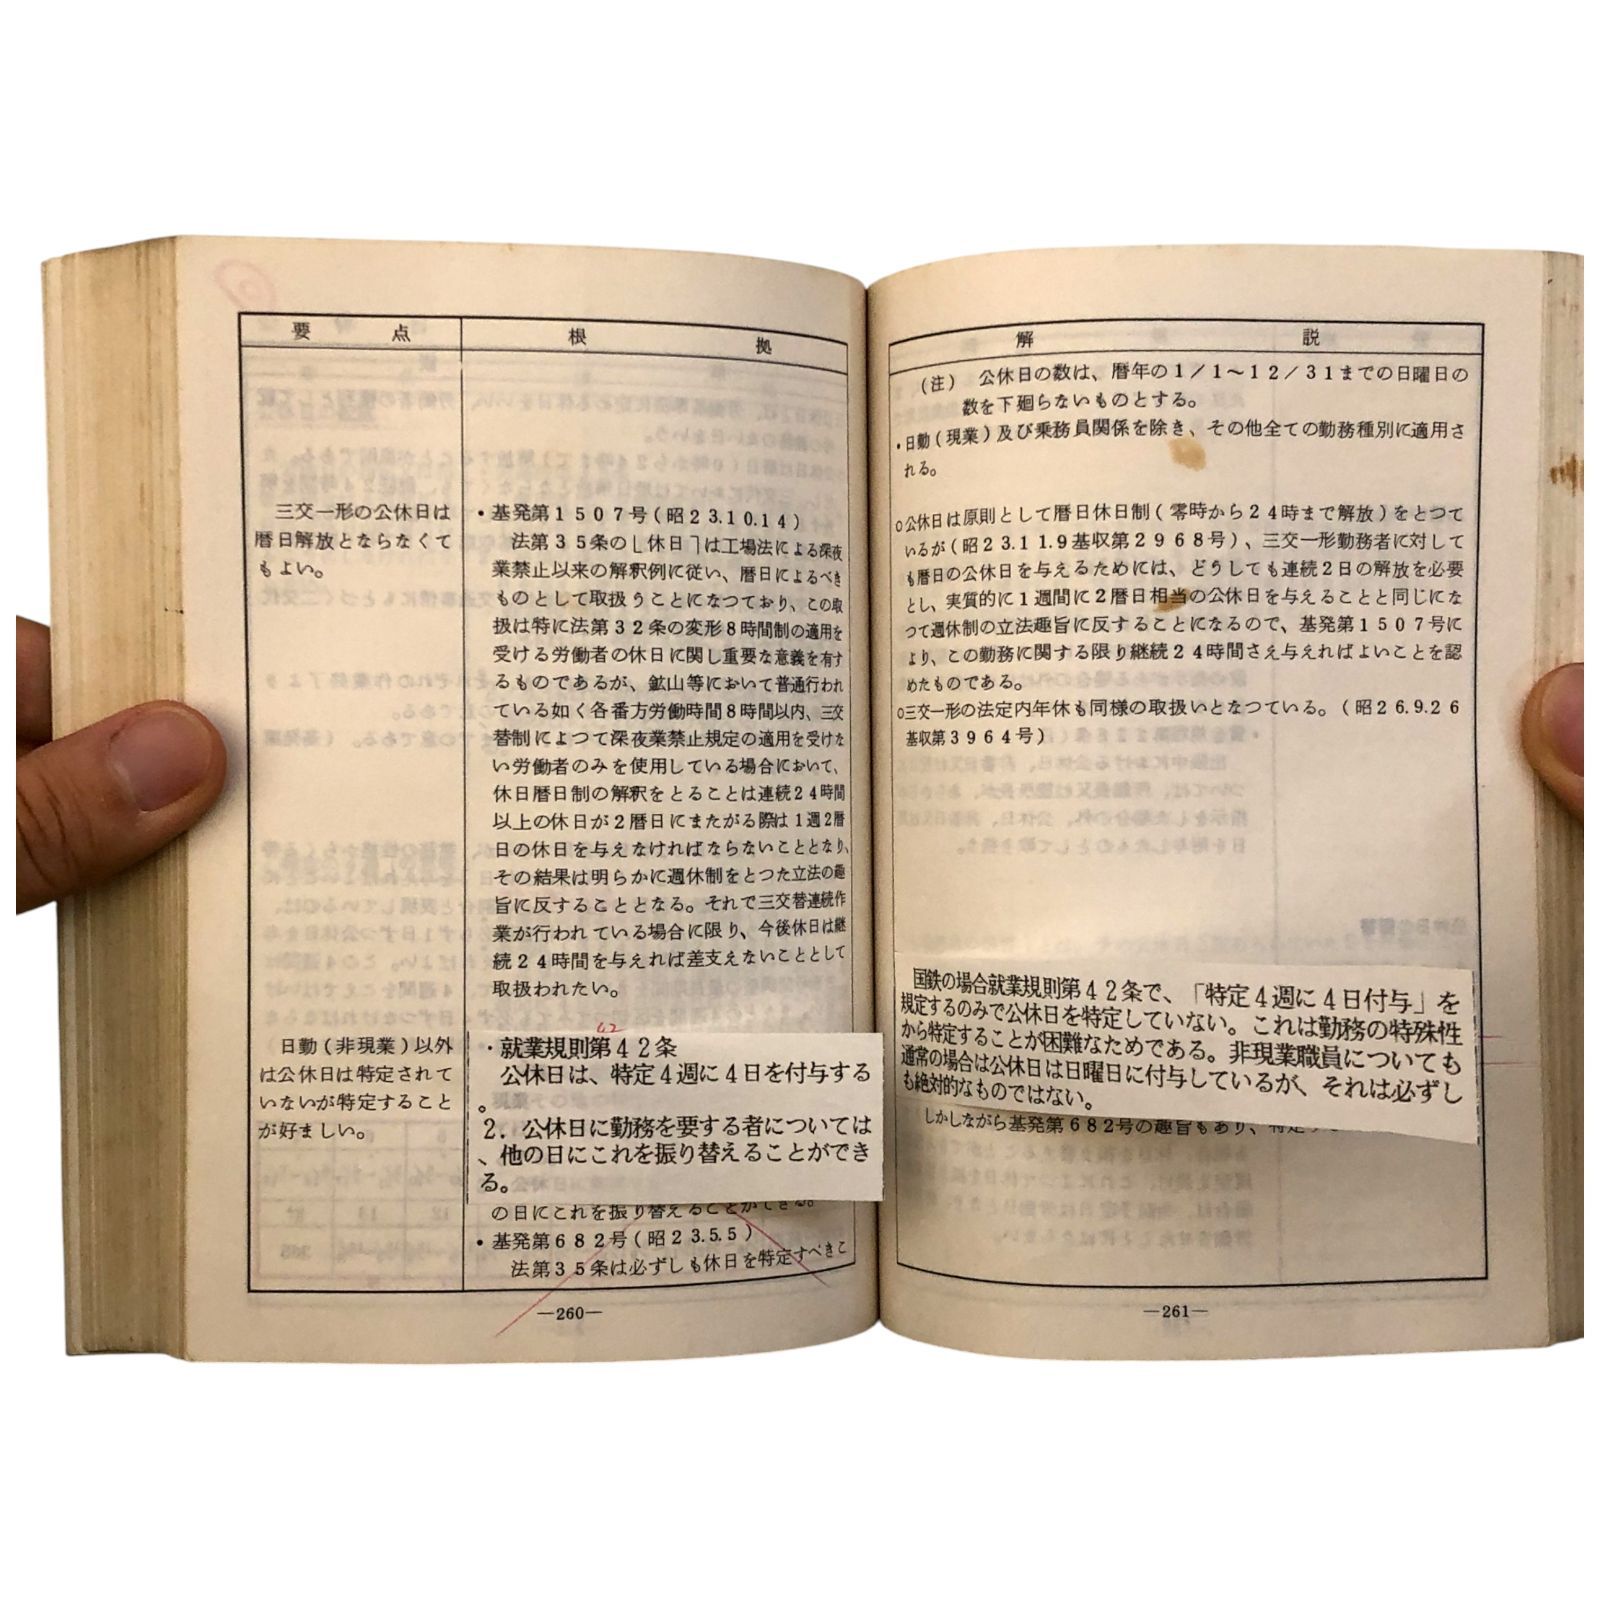 要点
根拠
三交一形の公休日は
暦日解放とならなくて
もよい。
・基発第1507号(昭23.10.14)
法第35条の「休日」は工場法による深夜
業禁止以来の解釈例に従い、暦日によるべき
ものとして取扱うことになつており、この取
扱は特に法第32条の変形8時間制の適用を
受ける労働者の休日に関し重要な意義を有す
るものであるが、鉱山等において普通行われ
ている如く各番方労働時間8時間以内、三交
替制によつて深夜業禁止規定の適用を受けな
い労働者のみを使用している場合において、
休日暦日制の解釈をとることは連続24時間
以上の休日が2暦日にまたがる際は1週2暦
日の休日を与えなければならないこととなり、
その結果は明らかに週休制をとつた立法の趣
旨に反することとなる。それで三交替連続作
業が行われている場合に限り、今後休日は継
続24時間を与えれば差支えないこととして
取扱われたい。
日勤(非現業)以外
は公休日は特定されて
いないが特定すること
が好ましい。
42
・就業規則第42条
公休日は、特定4週に4日を付与する
。
2．公休日に勤務を要する者については
、他の日にこれを振り替えることができ
る。
の日にこれを振り替えることができる。
・基発第682号(昭23.5.5)
法第35条は必ずしも休日を特定すべきこ
—260—
解説
(注) 公休日の数は、暦年の1/1～12/31までの日曜日の
数を下廻らないものとする。
・日勤(現業)及び乗務員関係を除き、その他全ての勤務種別に適用さ
れる。
○公休日は原則として暦日休日制(零時から24時まで解放)をとつて
いるが(昭23.11.9基収第2968号)、三交一形勤務者に対して
も暦日の公休日を与えるためには、どうしても連続2日の解放を必要
とし、実質的に1週間に2暦日相当の公休日を与えることと同じにな
つて週休制の立法趣旨に反することになるので、基発第1507号に
より、この勤務に関する限り継続24時間さえ与えればよいことを認
めたものである。
○三交一形の法定内年休も同様の取扱いとなつている。(昭26.9.26
基収第3964号)
国鉄の場合就業規則第42条で、「特定4週に4日付与」を
規定するのみで公休日を特定していない。これは勤務の特殊性
から特定することが困難なためである。非現業職員についても
通常の場合は公休日は日曜日に付与しているが、それは必ずし
も絶対的なものではない。
しかしながら基発第682号の趣旨もあり、特定
—261—